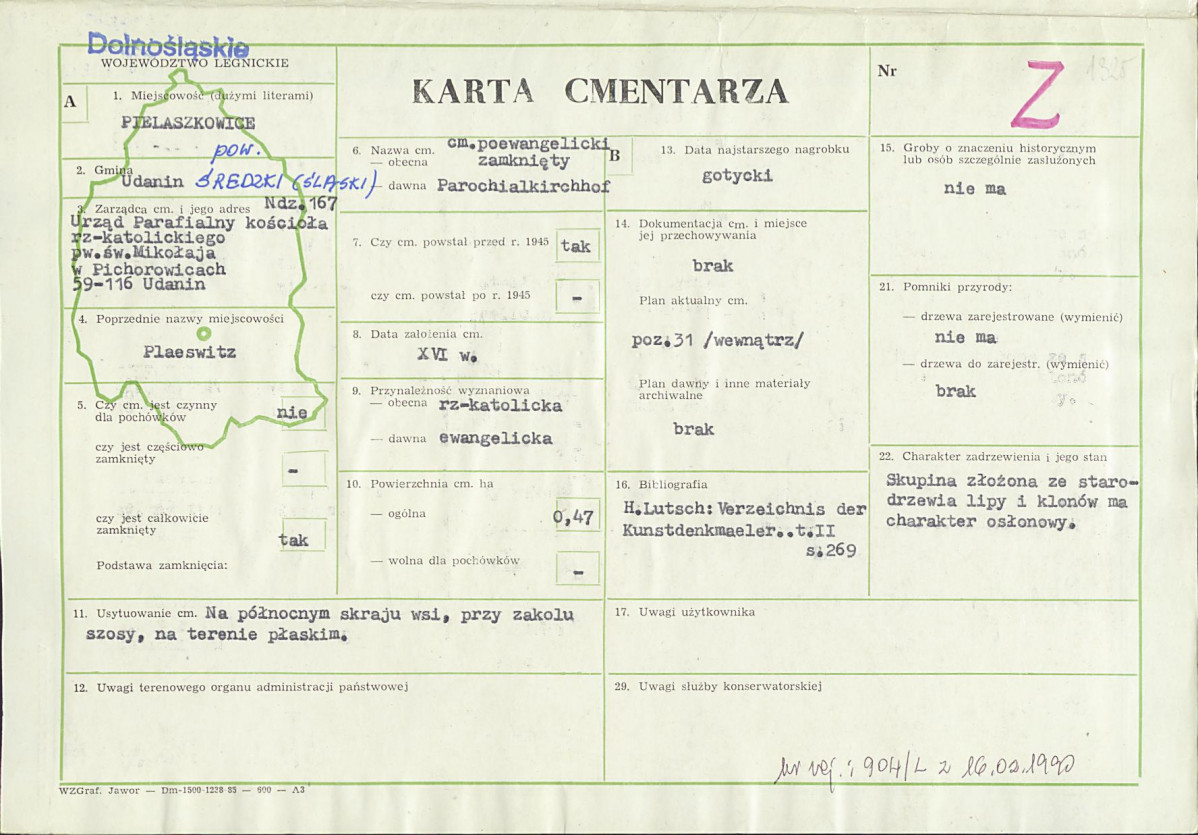 Dolnośląskie
WOJEWÓDZTWO LEGNICKIE
KARTA CMENTARZA
Nr
Z
1325
A
1. Miejscowość (dużymi literami)
PIELASZKOWICE
pow.
2. Gmina
Udanin ŚREDZKI (ŚLĄSKI)
3. Zarządca cm. i jego adres Ndz.167
Urząd Parafialny kościoła
rz-katolickiego
pw.św.Mikołaja
w Pichorowicach
59-116 Udanin
4. Poprzednie nazwy miejscowości
Plaeswitz
5. Czy cm. jest czynny
dla pochówków nie
czy jest częściowo
zamknięty -
czy jest całkowicie
zamknięty tak
Podstawa zamknięcia:
6. Nazwa cm. cm.poewangelicki
— obecna zamknięty
— dawna Parochialkirchhof
7. Czy cm. powstał przed r. 1945 tak
czy cm. powstał po r. 1945 -
8. Data założenia cm.
XVI w.
9. Przynależność wyznaniowa
— obecna rz-katolicka
— dawna ewangelicka
10. Powierzchnia cm. ha
— ogólna 0,47
— wolna dla pochówków -
11. Usytuowanie cm. Na północnym skraju wsi, przy zakolu
szosy, na terenie płaskim.
12. Uwagi terenowego organu administracji państwowej
B
13. Data najstarszego nagrobku
gotycki
14. Dokumentacja cm. i miejsce
jej przechowywania
brak
Plan aktualny cm.
poz.31 /wewnątrz/
Plan dawny i inne materiały
archiwalne
brak
16. Bibliografia
H.Lutsch:Verzeichnis der
Kunstdenkmaeler..t.II
s.269
15. Groby o znaczeniu historycznym
lub osób szczególnie zasłużonych
nie ma
21. Pomniki przyrody:
— drzewa zarejestrowane (wymienić)
nie ma
— drzewa do zarejestr. (wymienić)
brak
22. Charakter zadrzewienia i jego stan
Skupina złożona ze staro-
drzewia lipy i klonów ma
charakter osłonowy.
17. Uwagi użytkownika
29. Uwagi służby konserwatorskiej
nr rej.: 904/L z 16.02.1990
WZGraf. Jawor — Dm-1500-1228 85 — 600 — A3